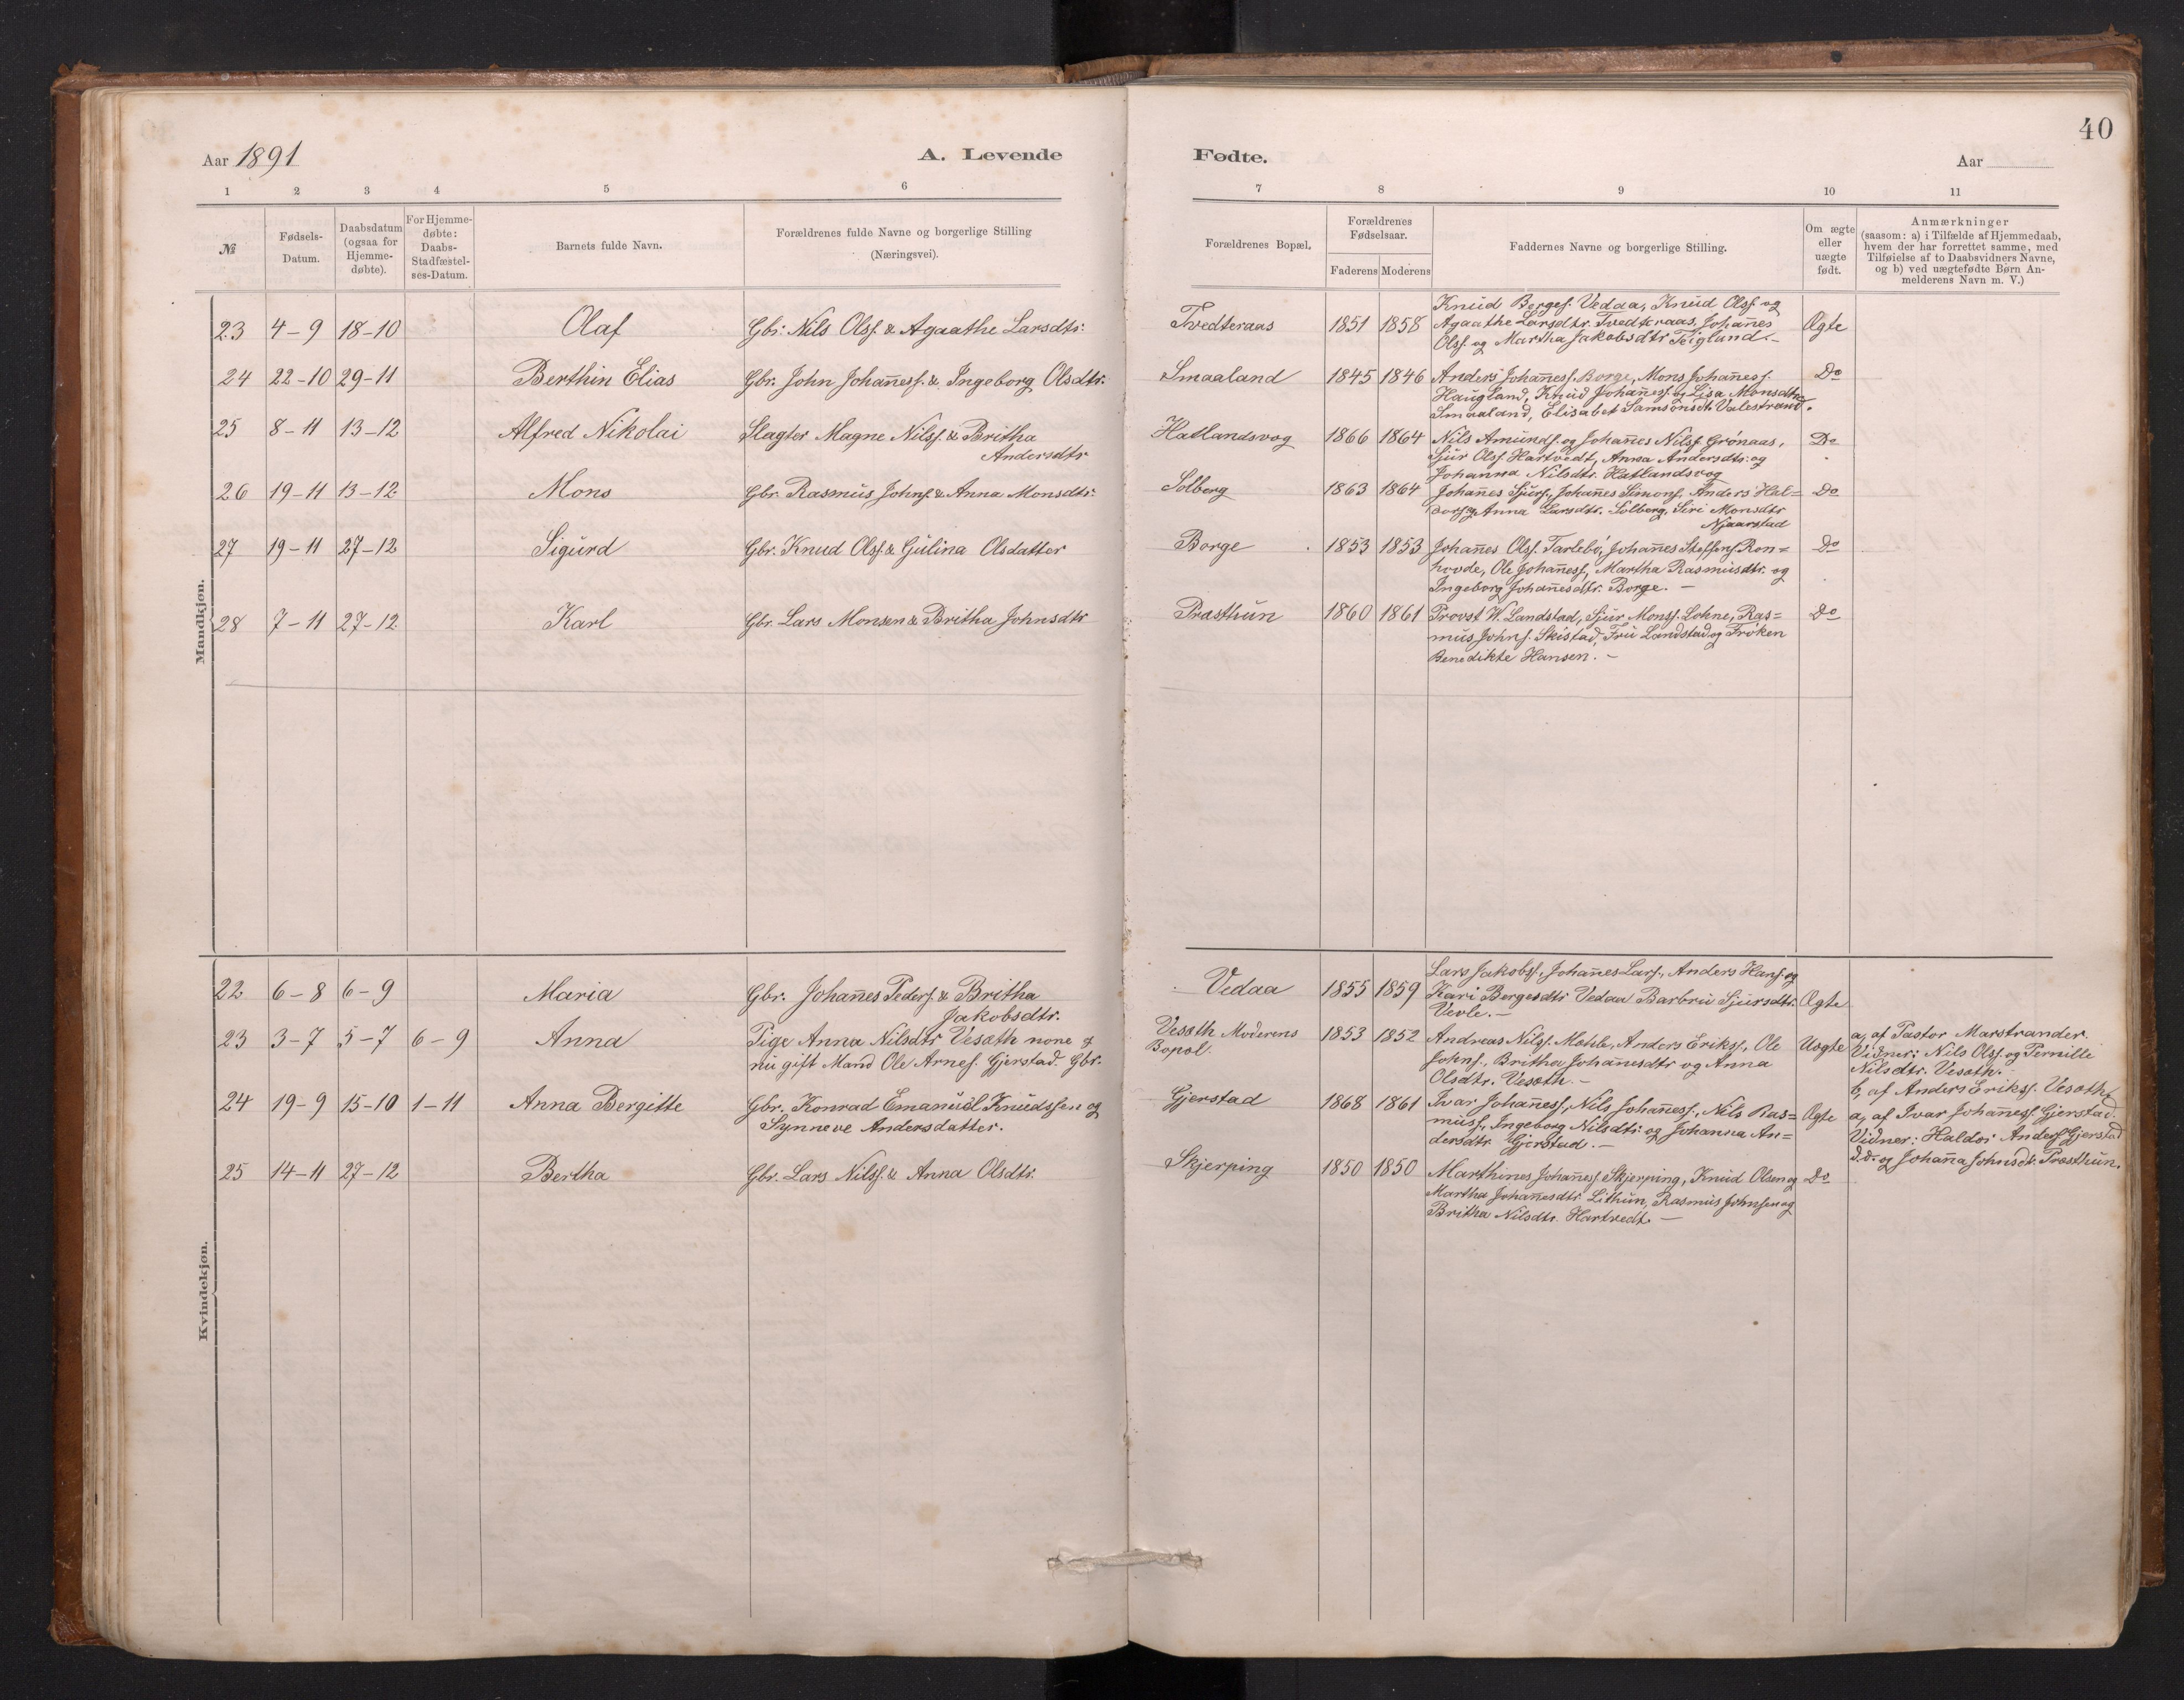 Aar 1891
A. Levende
Fødte.
Aar
40
1 2 3 4 5 6 7 8 9 10 11
№
Fødsels-
Datum.
Daabsdatum
(ogsaa for
Hjemme-
døbte).
For Hjemme-
døbte:
Daabs-
Stadfæstel-
ses-Datum.
Barnets fulde Navn.
Forældrenes fulde Navne og borgerlige Stilling
(Næringsvei).
Forældrenes Bopæl.
Forældrenes
Fødselsaar.
Faderens Moderens
Faddernes Navne og borgerlige Stilling.
Om ægte
eller
uægte
født.
Anmærkninger
(saasom: a) i Tilfælde af Hjemmedaab,
hvem der har forrettet samme, med
Tilføielse af to Daabsvidners Navne,
og b) ved uægtefødte Børn An-
melderens Navn m. V.)
Mandkjøn.
23 4-9 18-10 Olaf Gbr: Nils Olss. & Agaathe Larsdtr: Tvedteraas 1851 1858
Knud Berges. Vedaa, Knud Olss. og
Agaathe Larsdtr. Tvedteraas, Johañes
Olss. og Martha Jakobsdtr Teigland.-
Ægte
24 22-10 29-11 Berthin Elias Gbr. John Johañess. & Ingeborg Olsdtr. Smaaland 1845 1846
Anders Johañess. Borge, Mons Johañess.
Haugland, Knud Johañess. og Lisa Monsdtr.
Smaaland, Elisabet Samsonsdt. Valestrand.
Do
25 8-11 13-12 Alfred Nikolai Slagter Magne Nilss. & Britha
Andersdtr
Hatlandsvog 1866 1864
Nils Amunds. og Johañes Nilss. Grönaas,
Sjur Olss. Hartvedt, Anna Andersdtr. og
Johanna Nilsdtr. Hatlandsvog
Do
26 19-11 13-12 Mons Gbr. Rasmus Johns. & Anna Monsdtr. Solberg 1863 1864
Johañes Sjurs., Johañes Simons, Anders Hal-
vors og Anna Larsdtr. Solberg, Siri Monsdtr
Njaarstad
Do
27 19-11 27-12 Sigurd Gbr. Knud Olss. & Gulina Olsdatter Borge 1853 1853
Johañes Olss. Tarlebö, Johañes Steffens. Ron-
hovde, Ole Johañess., Martha Rasmusdtr. og
Ingeborg Johañesdtr. Borge.-
Do
28 7-11 27-12 Karl Gbr. Lars Monsen & Britha Johnsdtr Præsthun 1860 1861
Provst W. Landstad, Sjur Monss. Lohne, Ras-
mus Johns. Skistad, Fru Landstad og Fröken
Benedikte Hansen.-
Do
Kvindekjøn.
22 6-8 6-9 Maria Gbr. Johañes Peders. & Britha
Jakobsdtr.
Vedaa 1855 1859
Lars Jakobss., Johañes Lars., Anders Hans. og
Kari Bergesdtr Vedaa Barbru Sjursdtr.
Vevle.-
Ægte
23 3-7 5-7 6-9 Anna Pige Anna Nilsdtr Vesæth
nu gift Mand Ole Arnes. Gjerstad. Gbr.
Vesæth Moderens
Bopæl.
1853 1852
Andreas Nilss. Mæhle, Anders Erikss., Ole
Johns., Britha Johañesdtr og Anna
Olsdtr. Vesæth.-
Uægte
a, af Pastor Marstrander.
Vidner: Nils Olss. og Pernille
Nilsdtr. Vesæth.
b, af Anders Erikss. Vesæth
24 19-9 15-10 1-11 Anna Bergitte Gbr. Konrad Emanuel Knudssen og
Synneve Andersdatter.
Gjerstad 1868 1861
Ivar Johañess., Nils Johañess., Nils Ras-
muss., Ingeborg Nilsdtr. og Johanna An-
dersdtr. Gjerstad.-
Ægte
a, af Ivar Johañess. Gjerstad.
Vidner: Haldor Anders. Gjerstad
og Johaña Johnsdt. Præsthun.
25 14-11 27-12 Bertha Gbr. Lars Nilss. & Anna Olsdtr. Skjerping 1850 1850
Marthines Johañess. Skjerping, Knud Olsen og
Martha Johañesdtr. Lithun, Rasmus Johnsen og
Britha Nilsdtr. Hartvedt.-
Do